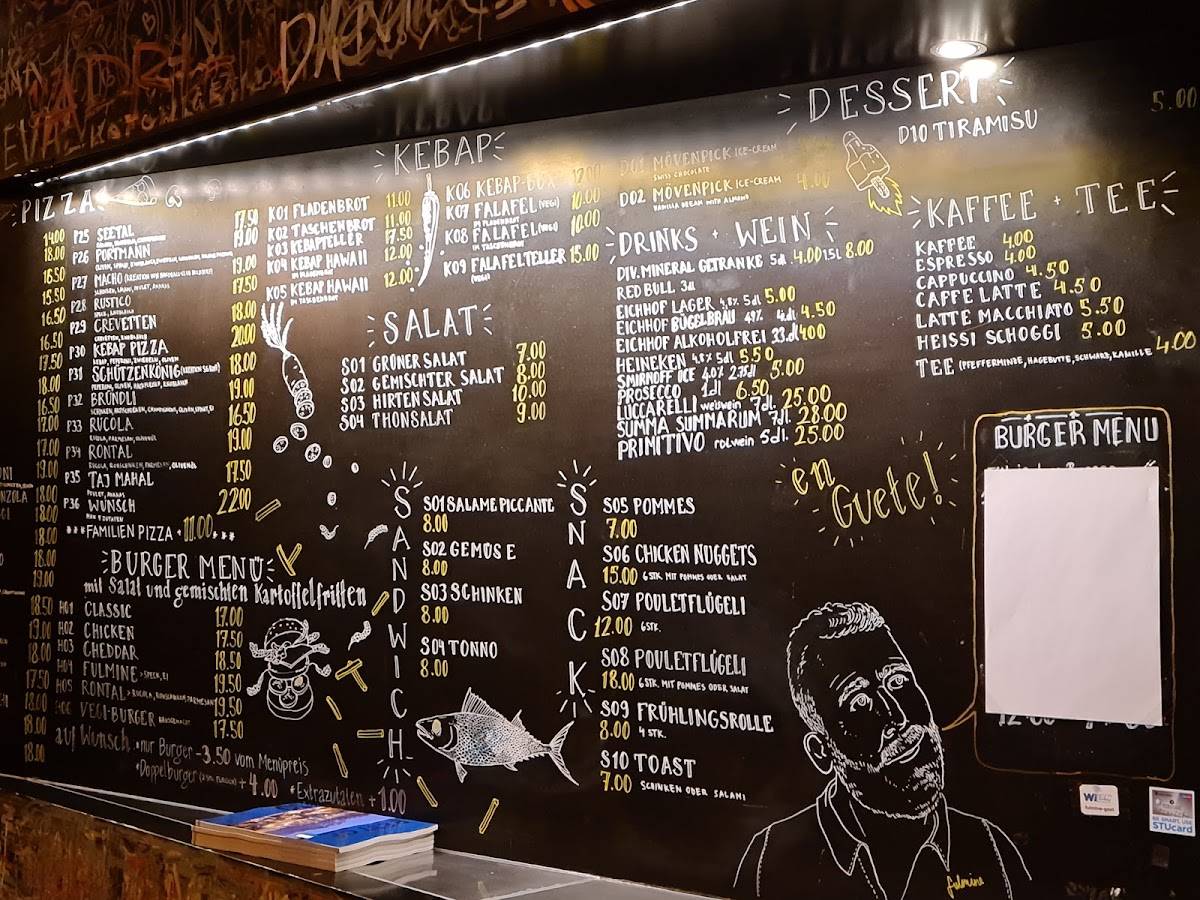 PIZZA
14.00
18.00
15.50
15.50
16.50
16.50
17.50
18.00
16.50
17.00
17.00
19.00
18.00
18.00
18.00
18.00
19.00
18.50
19.00
18.00
17.50
18.00
18.00
18.00
P25 SEETAL 17.50
P26 PORTMANN 19.00
P27 MACHO 19.00
SCHINKEN, SALAMI, POULET, ANANAS
P28 RUSTICO 17.50
SPECK, KNOBLAUCH
P29 CREVETTEN 18.00
CREVETTEN, KNOBLAUCH
P30 KEBAP PIZZA 20.00
KEBAP, PEPERONI, ZWIEBELN, OLIVEN
P31 SCHÜTZENKÖNIG 18.00
P32 BRÜNDLI 19.00
P33 RUCOLA 16.50
RUCOLA, PARMESAN, OLIVENÖL
P34 RONTAL 19.00
RUCOLA, ROHSCHINKEN, PARMESAN, OLIVENÖL
P35 TAJ MAHAL 17.50
POULET, ANANAS
P36 WUNSCH 22.00
***FAMILIEN PIZZA + 11.00***
BURGER MENÜ
mit Salat und gemischten Kartoffelfritten
H01 CLASSIC 17.00
H02 CHICKEN 17.50
H03 CHEDDAR 18.50
H04 FULMINE >SPECK, EI 19.50
H05 RONTAL >RUCOLA, ROHSCHINKEN, PARMESAN 19.50
H06 VEGI-BURGER 17.50
auf Wunsch *nur Burger -3.50 vom Menüpreis
*Doppelburger + 4.00 *Extrazutaten +1.00
KEBAP
K01 FLADENBROT 11.00
K02 TASCHENBROT 11.00
K03 KEBAPTELLER 17.50
K04 KEBAP HAWAII 12.00
IM FLADENBROT
K05 KEBAP HAWAII 12.00
IM TASCHENBROT
K06 KEBAP-BOX 12.00
K07 FALAFEL (VEGI) 10.00
IM FLADENBROT
K08 FALAFEL (VEGI) 10.00
IM TASCHENBROT
K09 FALAFELTELLER 15.00
(VEGI)
SALAT
S01 GRÜNER SALAT 7.00
S02 GEMISCHTER SALAT 8.00
S03 HIRTEN SALAT 10.00
S04 THONSALAT 9.00
SANDWICH
S01 SALAME PICCANTE
8.00
S02 GEMÜSE
8.00
S03 SCHINKEN
8.00
S04 TONNO
8.00
SNACK
S05 POMMES
7.00
S06 CHICKEN NUGGETS
15.00 6 STK. MIT POMMES ODER SALAT
S07 POULETFLÜGELI
12.00 6 STK.
S08 POULETFLÜGELI
18.00 6 STK. MIT POMMES ODER SALAT
S09 FRÜHLINGSROLLE
8.00 4 STK.
S10 TOAST
7.00 SCHINKEN ODER SALAMI
DESSERT
D01 MÖVENPICK ICE-CREAM
SWISS CHOCOLATE
D02 MÖVENPICK ICE-CREAM 4.00
VANILLA DREAM WITH ALMOND
D10 TIRAMISU 5.00
DRINKS + WEIN
DIV. MINERAL GETRÄNKE 5dl 4.00 1.5L 8.00
RED BULL 3dl
EICHHOF LAGER 4,8% 5dl 5.00
EICHHOF BÜGELBRÄU 4.50
EICHHOF ALKOHOLFREI 33.dl 4.00
HEINEKEN 5.50
SMIRNOFF ICE 4.0% 2.75dl 5.00
PROSECCO 1dl 6.50
LUCCARELLI weisswein 7dl. 25.00
SUMMA SUMMARUM 7dl. 28.00
PRIMITIVO rotwein 5dl. 25.00
KAFFEE + TEE
KAFFEE 4.00
ESPRESSO 4.00
CAPPUCCINO 4.50
CAFFE LATTE 4.50
LATTE MACCHIATO 5.50
HEISSI SCHOGGI 5.00
TEE (PFEFFERMINZE, HAGEBUTTE, SCHWARZ, KAMILLE 4.00
en Guete!
BURGER MENU
fulmine
STUcard